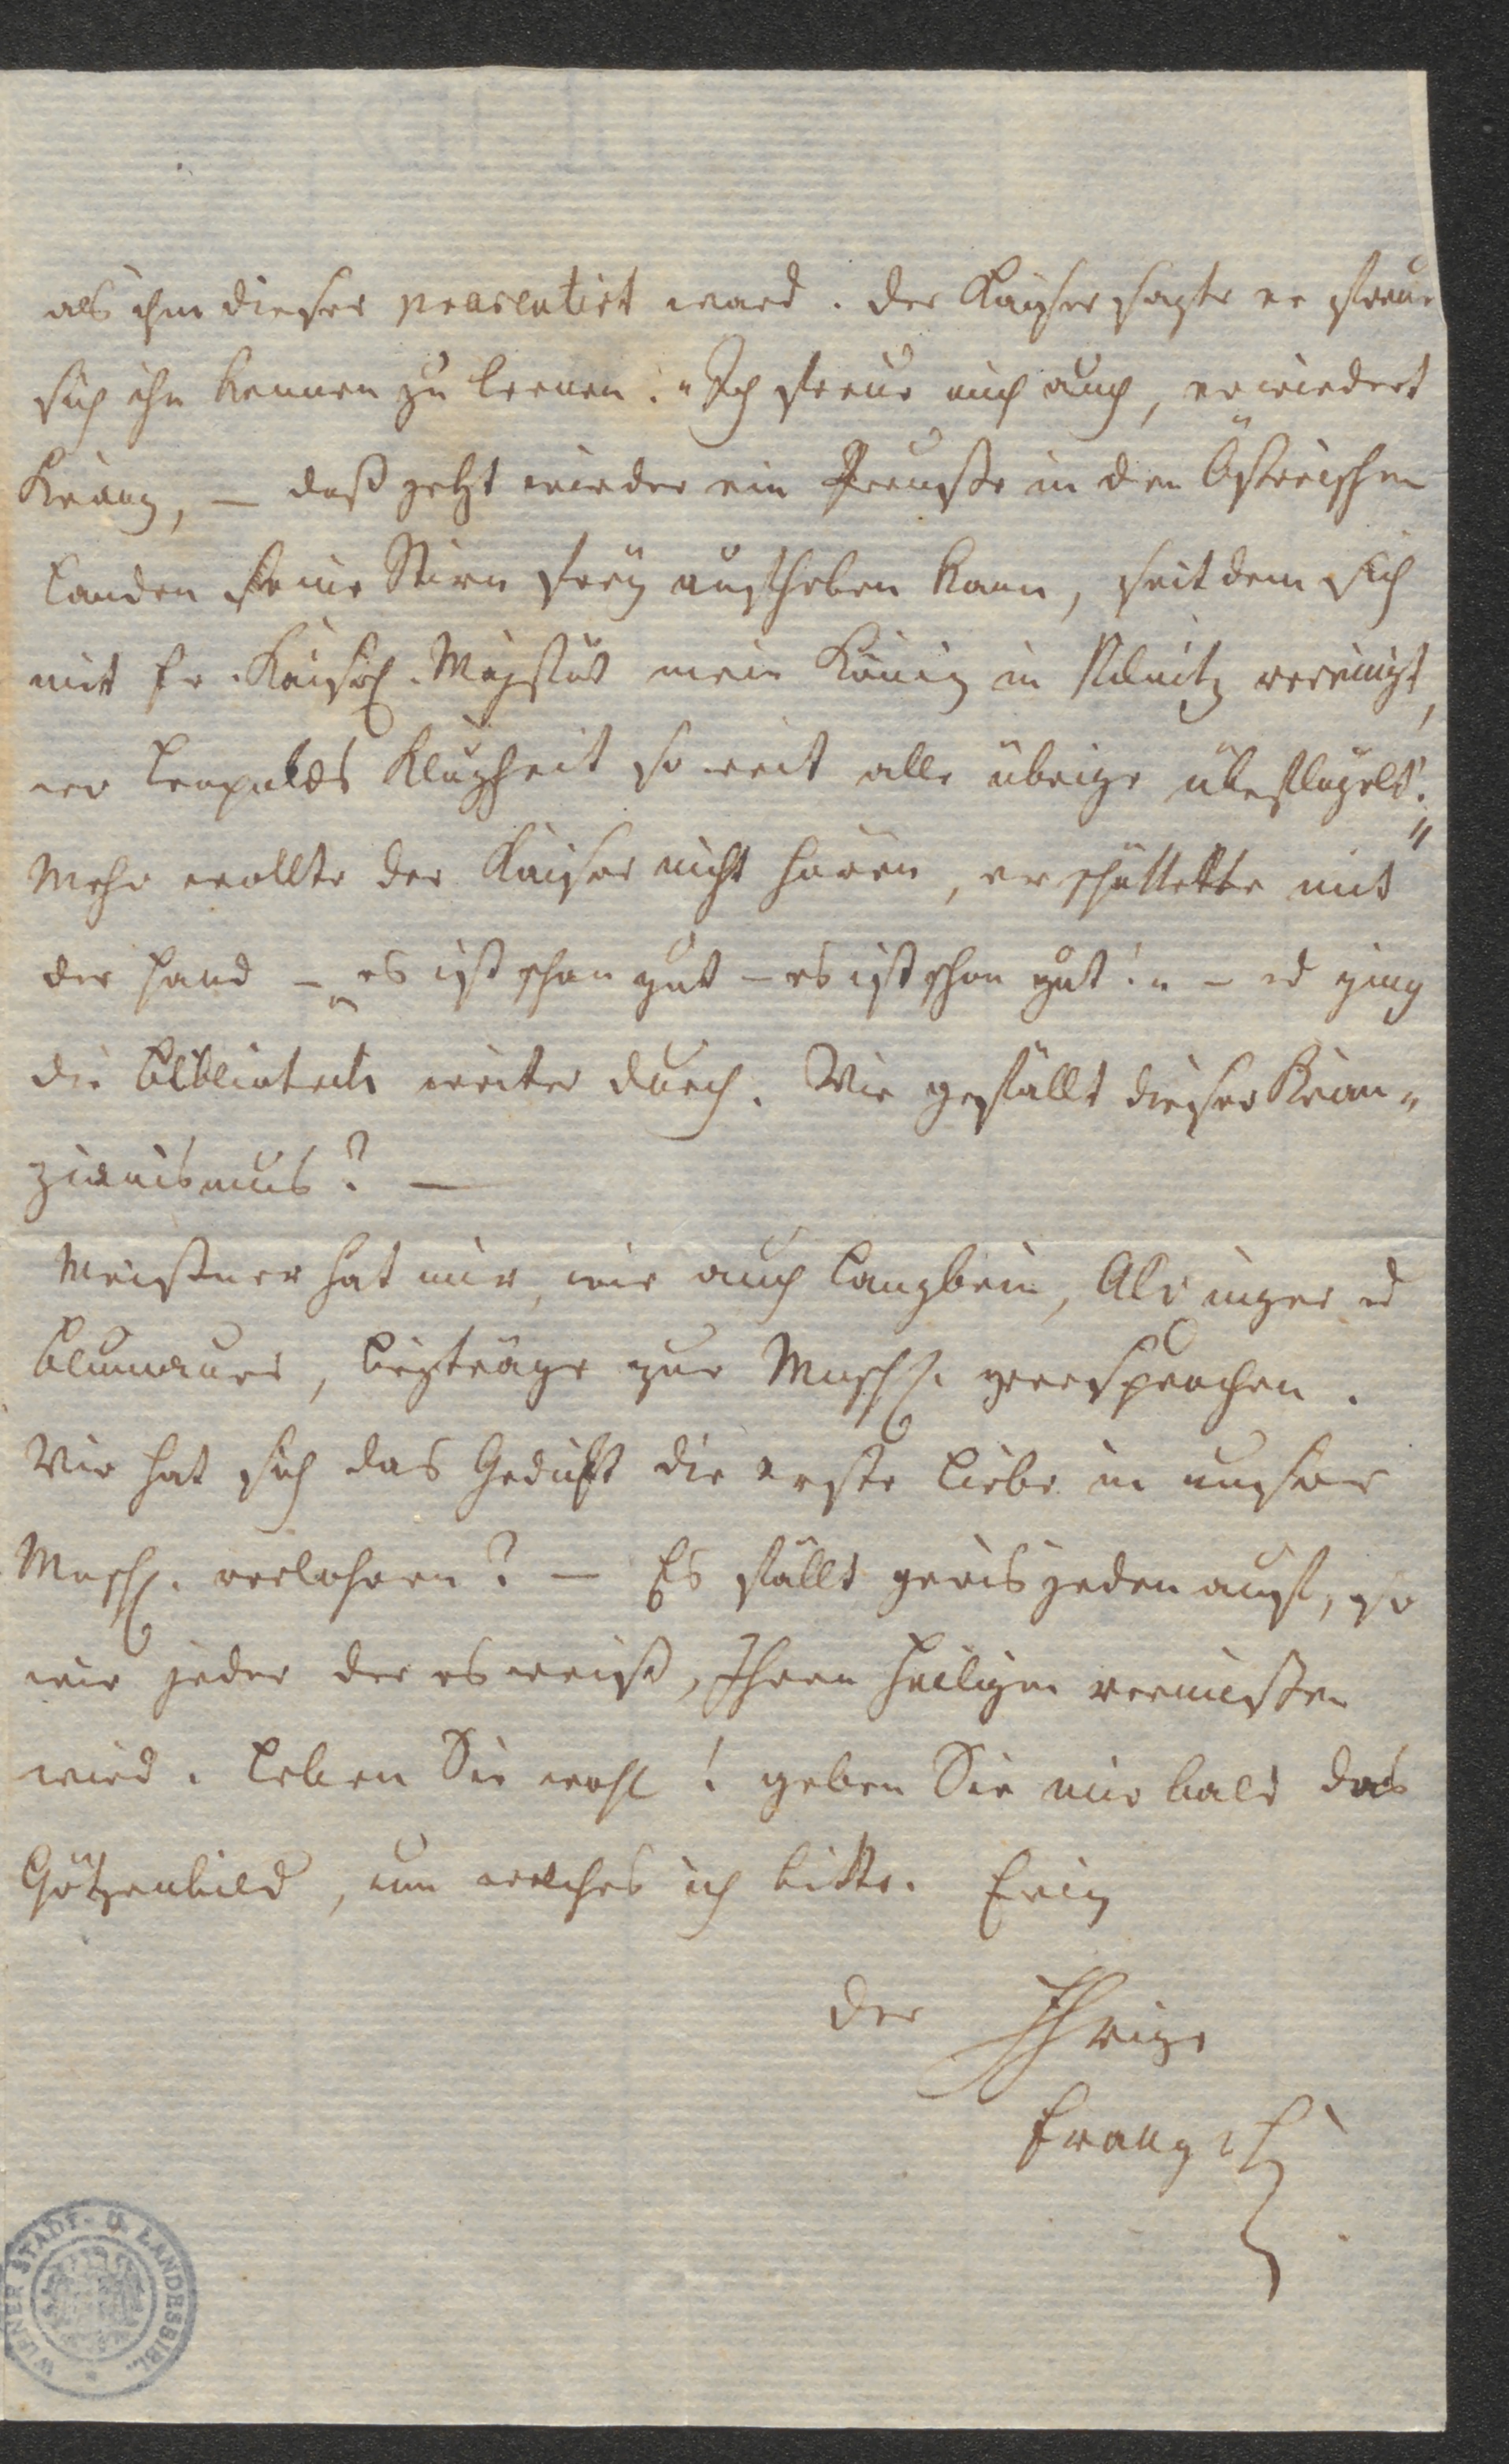 als ihm dieser praesentirt ward. Der Kaiser sagte er freue
sich ihn kennen zu lernen. „Ich freue mich auch, erwiedert
Kranz, — daß jetzt wieder ein Preuße in den Östreischen
Landen seine Stirn frey aufheben kann, seitdem sich
mit Er. Kaiserl. Majestät mein König in Pilnitz vereinigt,
wo Leopolds Klugheit so weit alle übrige überflügelt."
Mehr wollte der Kaiser nicht hören, er schüttelte mit
der Hand — „es ist schon gut — es ist schon gut!" — u ging
die Bibliotek weiter durch. Wie gefällt dieser Kran-
zianismus? —
Meißner hat mir, wie auch Langbein, Alxinger u
Blumauer, Beyträge zur Mschft. versprochen.
Wie hat sich das Gedicht die erste Liebe in unsrer
Mschft. verlohren? — Es fällt gewis jeden auf, so
wie jeder der es weiß, Ihren Heiligen vermißen
wird. Leben Sie wohl! geben Sie mir bald das
Götzenbild, um welches ich bitte. Ewig
der Ihrige
Franz
WIENER STADT- U. LANDESBIBL.